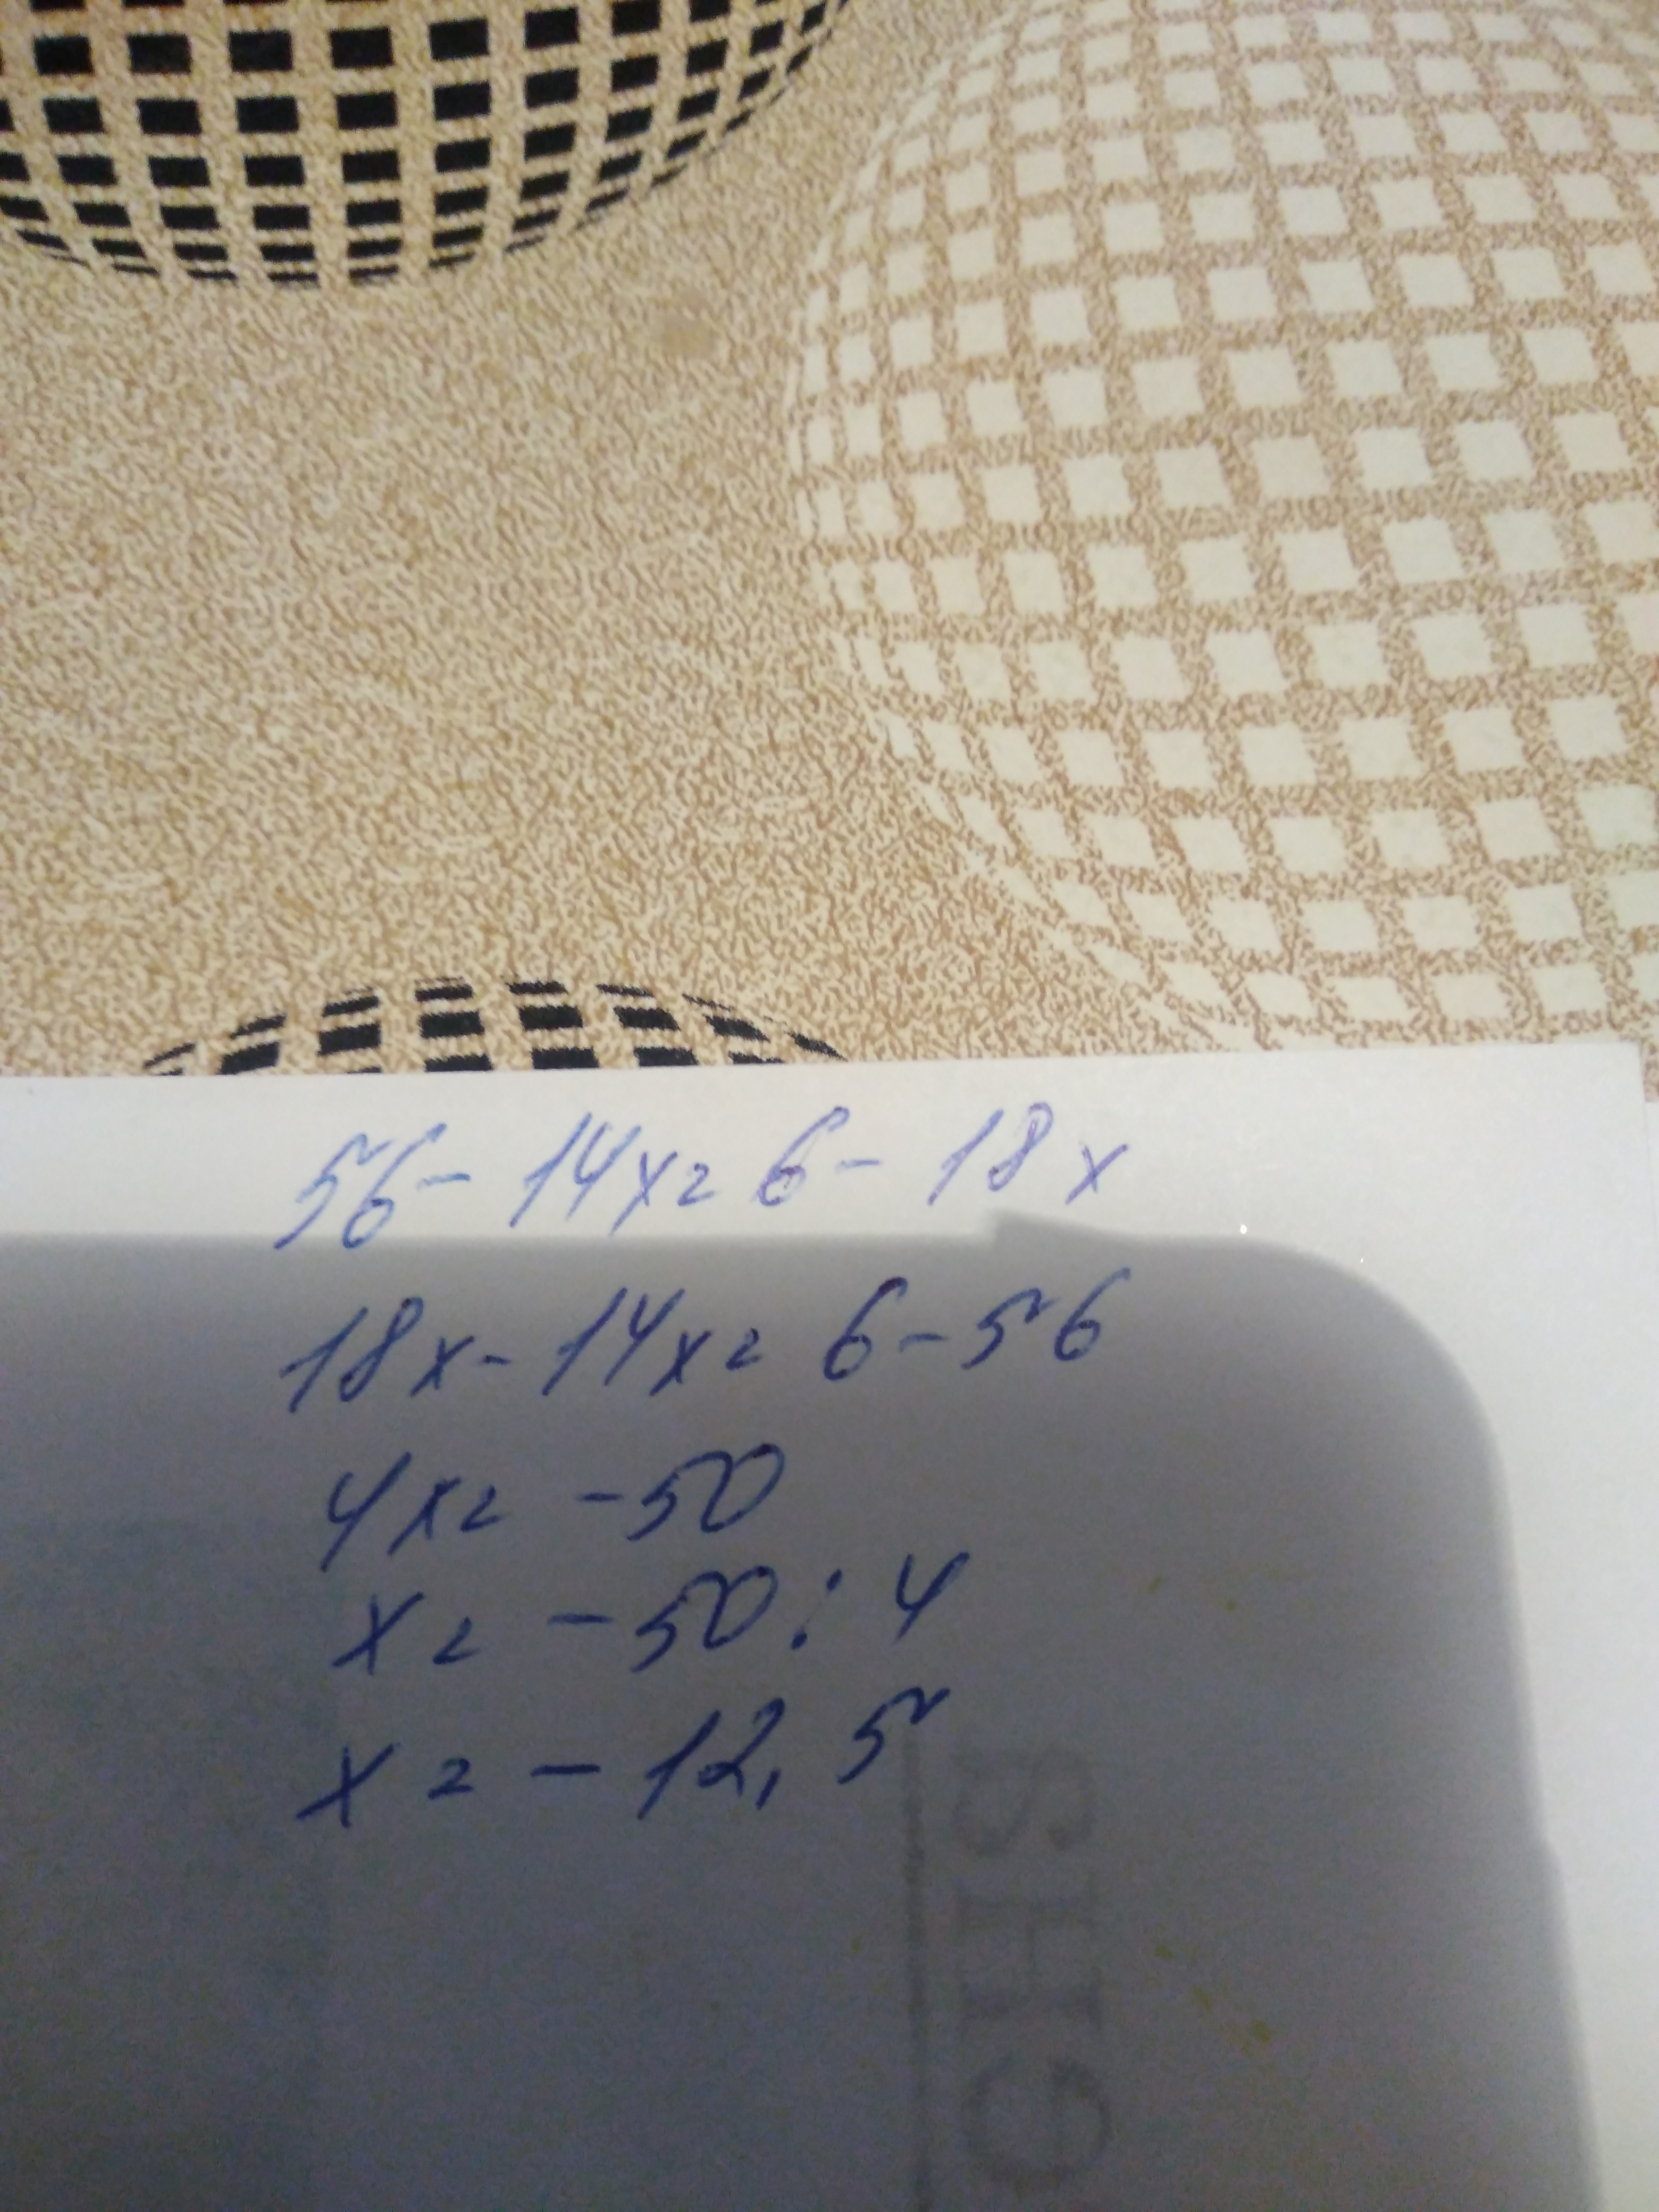 56 - 14x = 6 - 18x
18x - 14x = 6 - 56
4x = -50
x = -50 : 4
x = -12,5